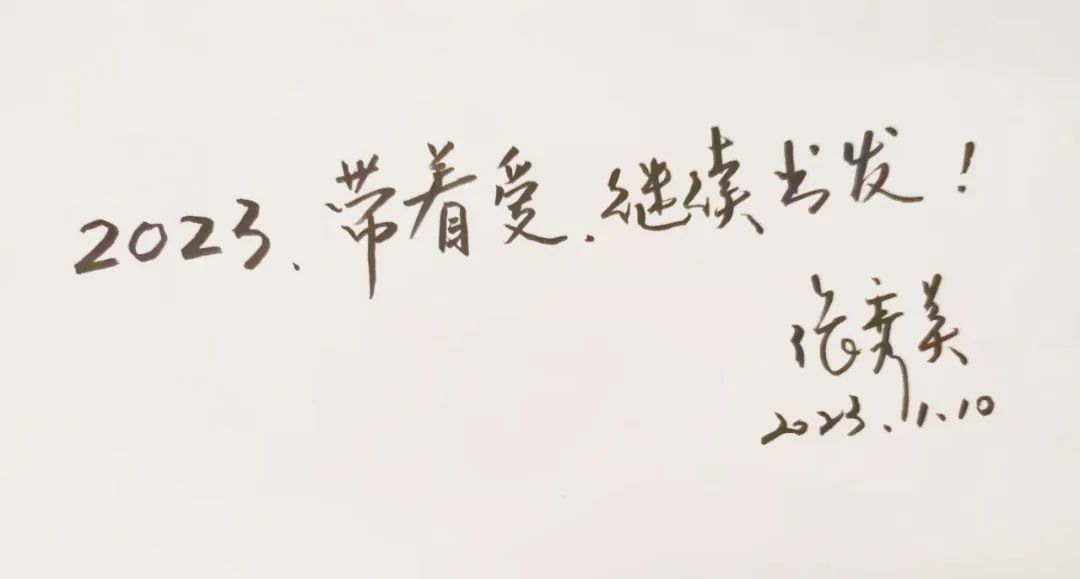 2023、带着爱、继续出发！
张秀美
2023.1.10